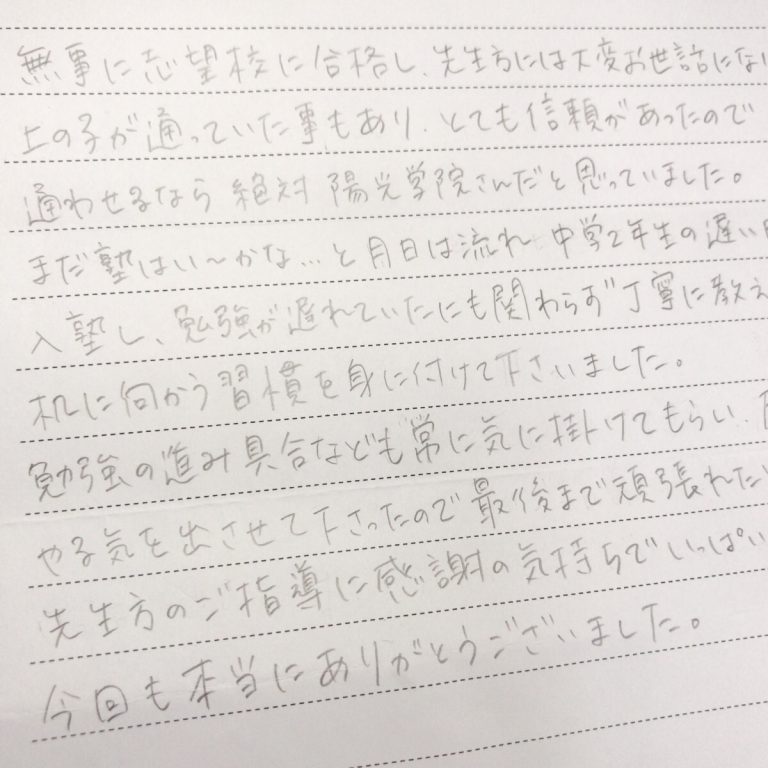 無事に志望校に合格し、先生方には大変お世話にな
上の子が通っていた事もあり、とても信頼があったので
通わせるなら絶対陽光学院さんだと思っていました。
まだ塾はい〜かな…と月日は流れ 中学2年生の遅い
入塾し、勉強が遅れていたにも関わらず丁寧に教え
机に向かう習慣を身に付けて下さいました。
勉強の進み具合なども常に気に掛けてもらい、
やる気を出させて下さったので最後まで頑張れた
先生方のご指導に感謝の気持ちでいっぱい
今回も本当にありがとうございました。